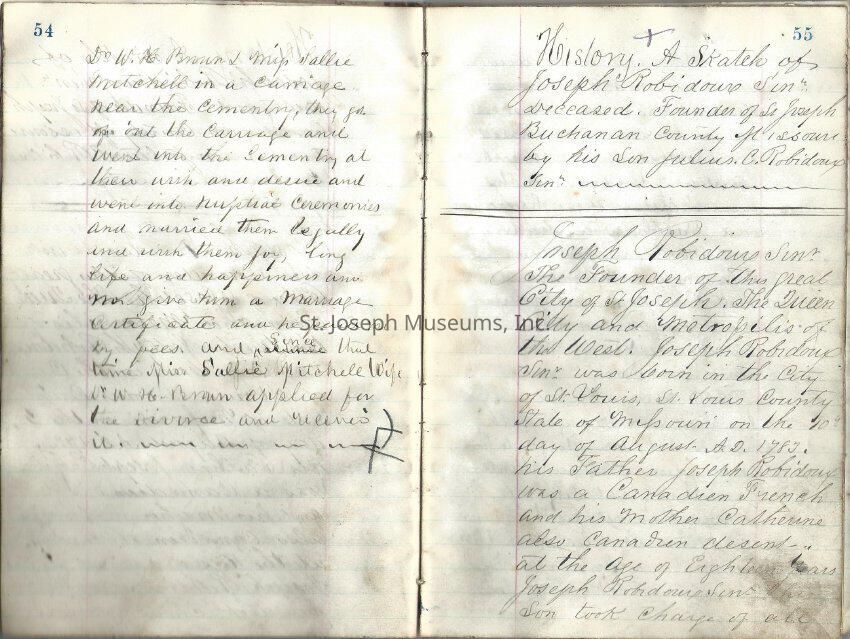 54
Dr W. H Brown & Miss Sallie
Mitchell in a Carriage
near the Cementry, they got
out the Carriage and
went into the Cementry at
their wish and desire and
went into Nuptial Ceremonies
and married them legally
and wish them joy, long
life and happiness and
give him a Marriage
Certificate and he
fees. and Since that
time Miss Sallie Mitchell Wife
Dr W. H. Brown applied for
the divorce and receives
it
55
History. A Skatch of
Joseph Robidoux Sinr
Deceased. Founder of St Joseph
Buchanan County Missouri
by his Son Julius. C. Robidoux
Sinr
Joseph Robidoux Sinr
The Founder of this great
City of St Joseph. The Queen
City and Metropilis of
the West. Joseph Robidoux
Sinr was born in the City
of St. Louis, St. Louis County
State of Missouri on the 10th
day of August A.D. 1783.
his Father Joseph Robidoux
was a Canadien French
and his Mother Catherine
also Canadien desent.
at the Age of Eighteen Years
Joseph Robidoux Sinr
Son took charge of all
St. Joseph Museums, Inc.